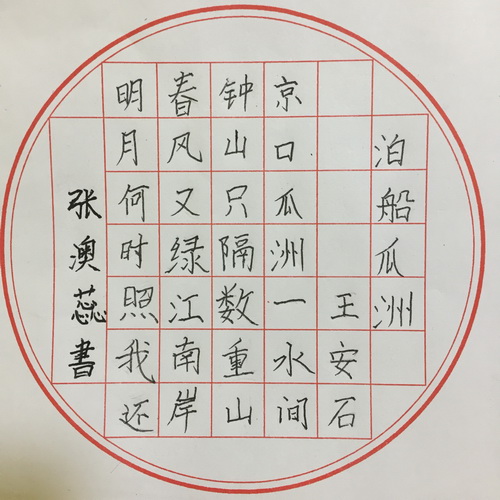 泊船瓜洲
王安石
京口瓜洲一水间
钟山只隔数重山
春风又绿江南岸
明月何时照我还
张澳蕊書